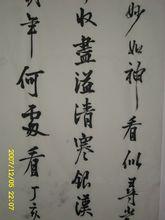 妙如神看似尋
收盡溢清寒銀漢
年何處看丁亥
2007/12/05 22:07